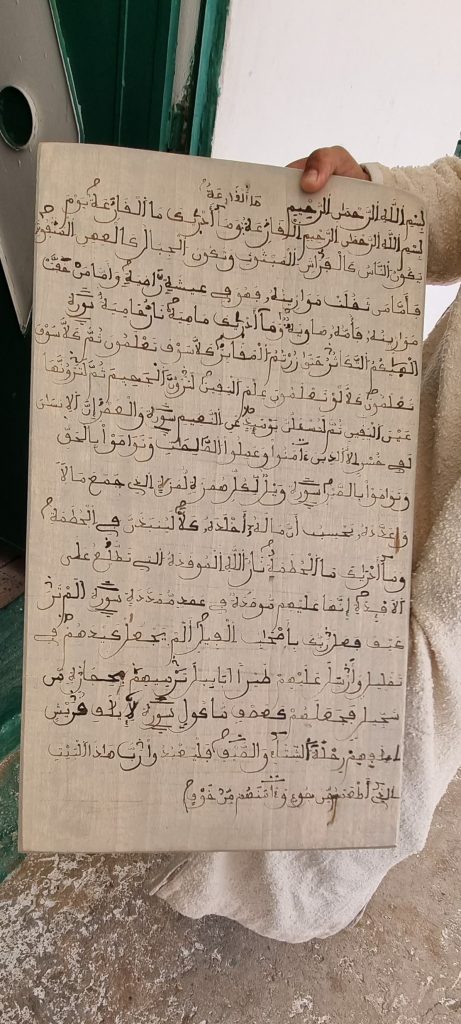 بسم الله الرحمن الرحيم ما القارعة
بسم الله الرحمن الرحيم القارعة وما أدريك ما القارعة يوم
يكون الناس كالفراش المبثوث وتكون الجبال كالعهن المنفوش
فأما من ثقلت موازينه فهو في عيشة راضية وأما من خفت
موازينه فأمه هاوية وما أدريك ما هيه نار حامية سورة
ألهيكم التكاثر حتى زرتم المقابر كلا سوف تعلمون ثم كلا سوف
تعلمون كلا لو تعلمون علم اليقين لترون الجحيم ثم لترونها
عين اليقين ثم لتسئلن يومئذ عن النعيم سورة والعصر إن الإنسان
لفي خسر إلا الذين ءامنوا وعملوا الصالحات وتواصوا بالحق
وتواصوا بالصبر سورة ويل لكل همزة لمزة الذي جمع مالا
وعدده يحسب أن ماله أخلده كلا لينبذن في الحطمة
وما أدريك ما الحطمة نار الله الموقدة التي تطلع على
الأفئدة إنها عليهم موصدة في عمد ممددة سورة ألم تر
كيف فعل ربك بأصحب الفيل ألم يجعل كيدهم في
تضليل وأرسل عليهم طيرا أبابيل ترميهم بحجارة من
سجيل فجعلهم كعصف مأكول سورة لإيلف قريش
إيلفهم رحلة الشتاء والصيف فليعبدوا رب هذا البيت
الذي أطعمهم من جوع وءامنهم من خوف